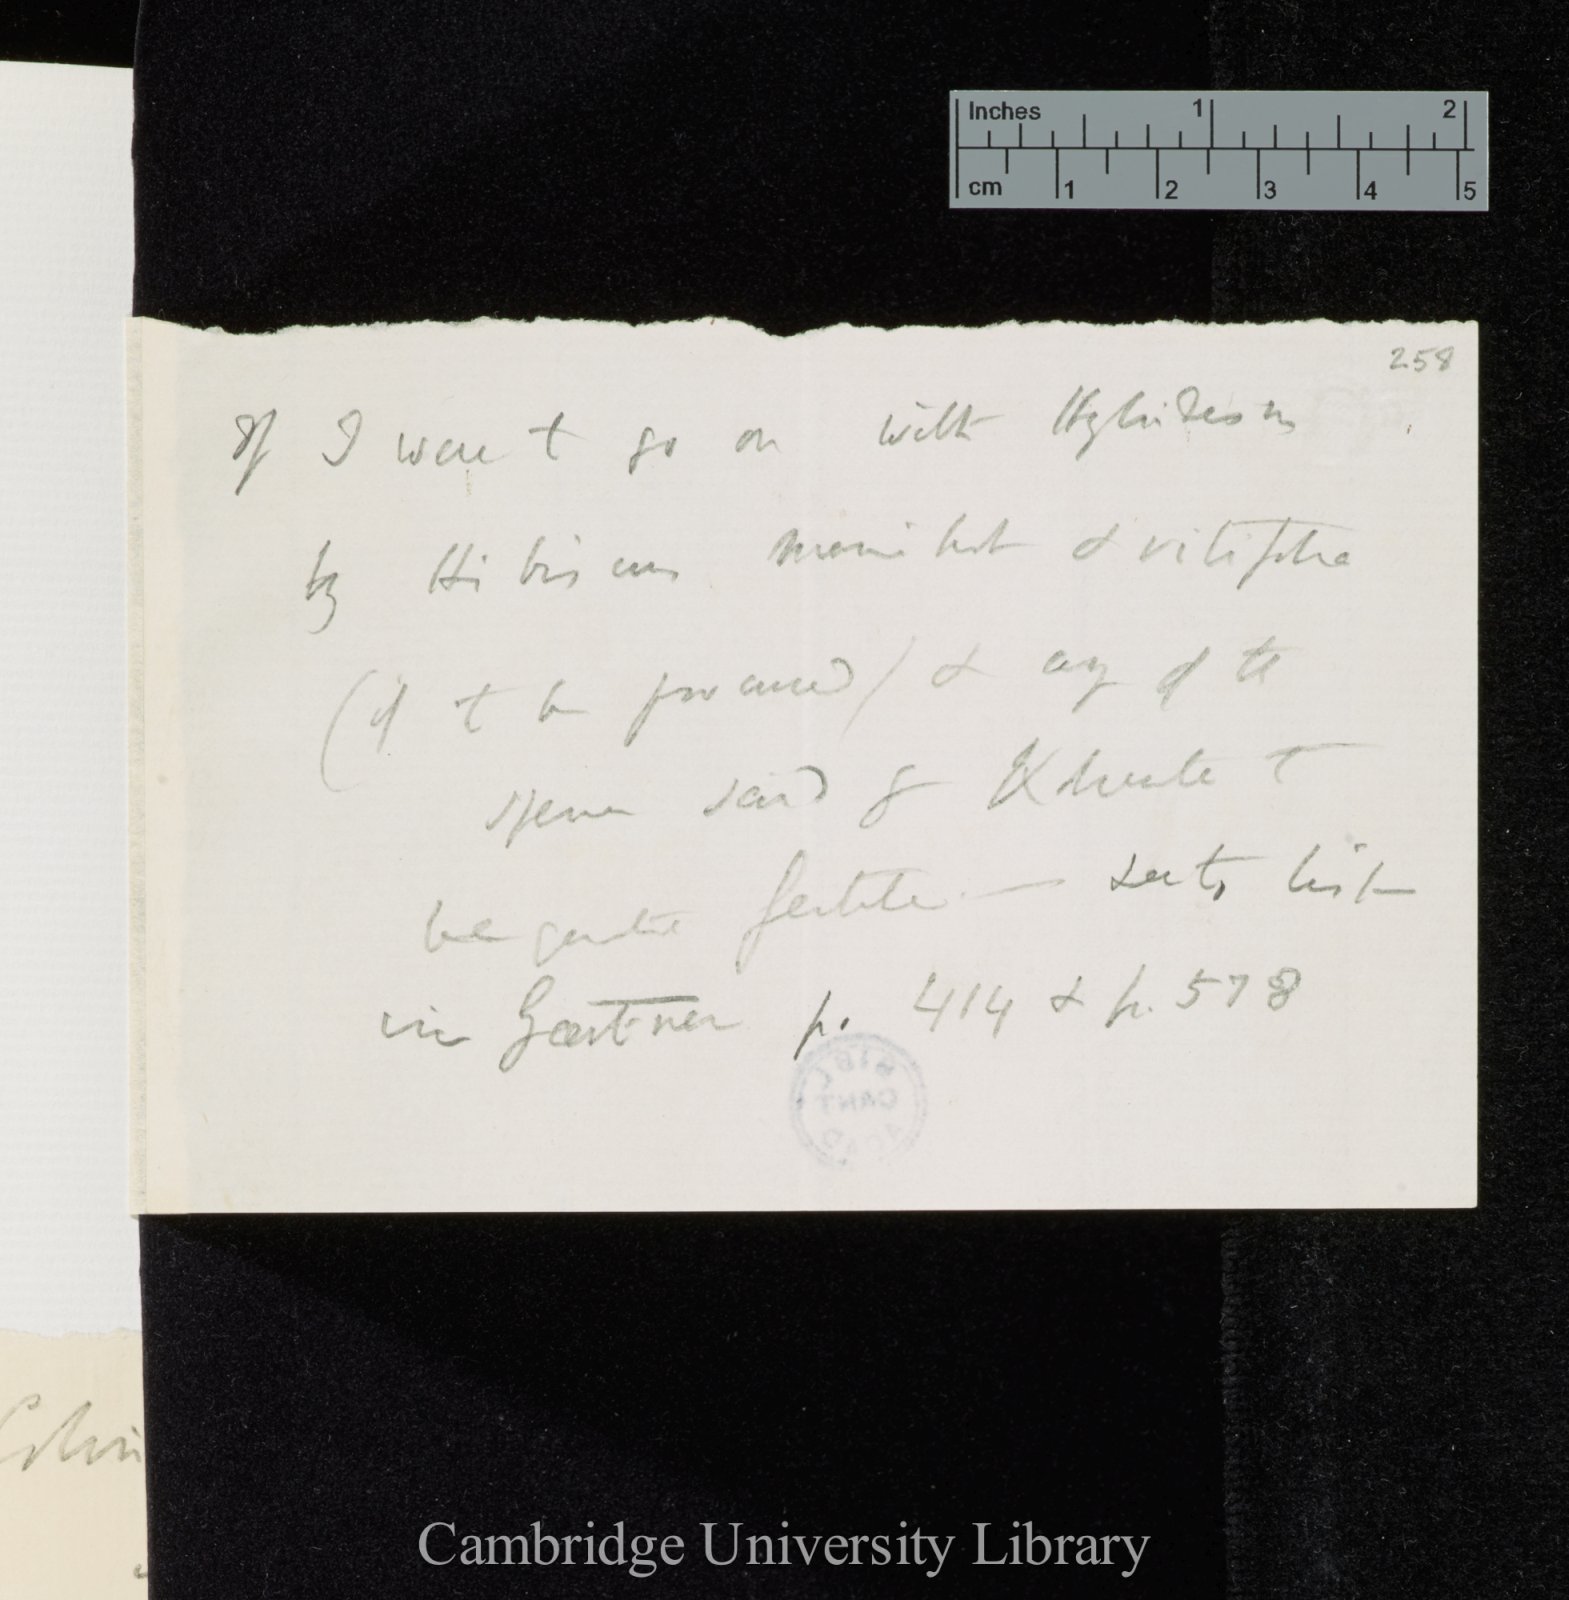 Inches 1 2
cm 1 2 3 4 5
258
If I were to go on with Hybridism
try Hibiscus manihot & vitifolia
(if to be procured) & any of the
species said by Kolreuter to
be quite fertile — see list
in Gærtner p. 414 & p. 578
Cambridge University Library